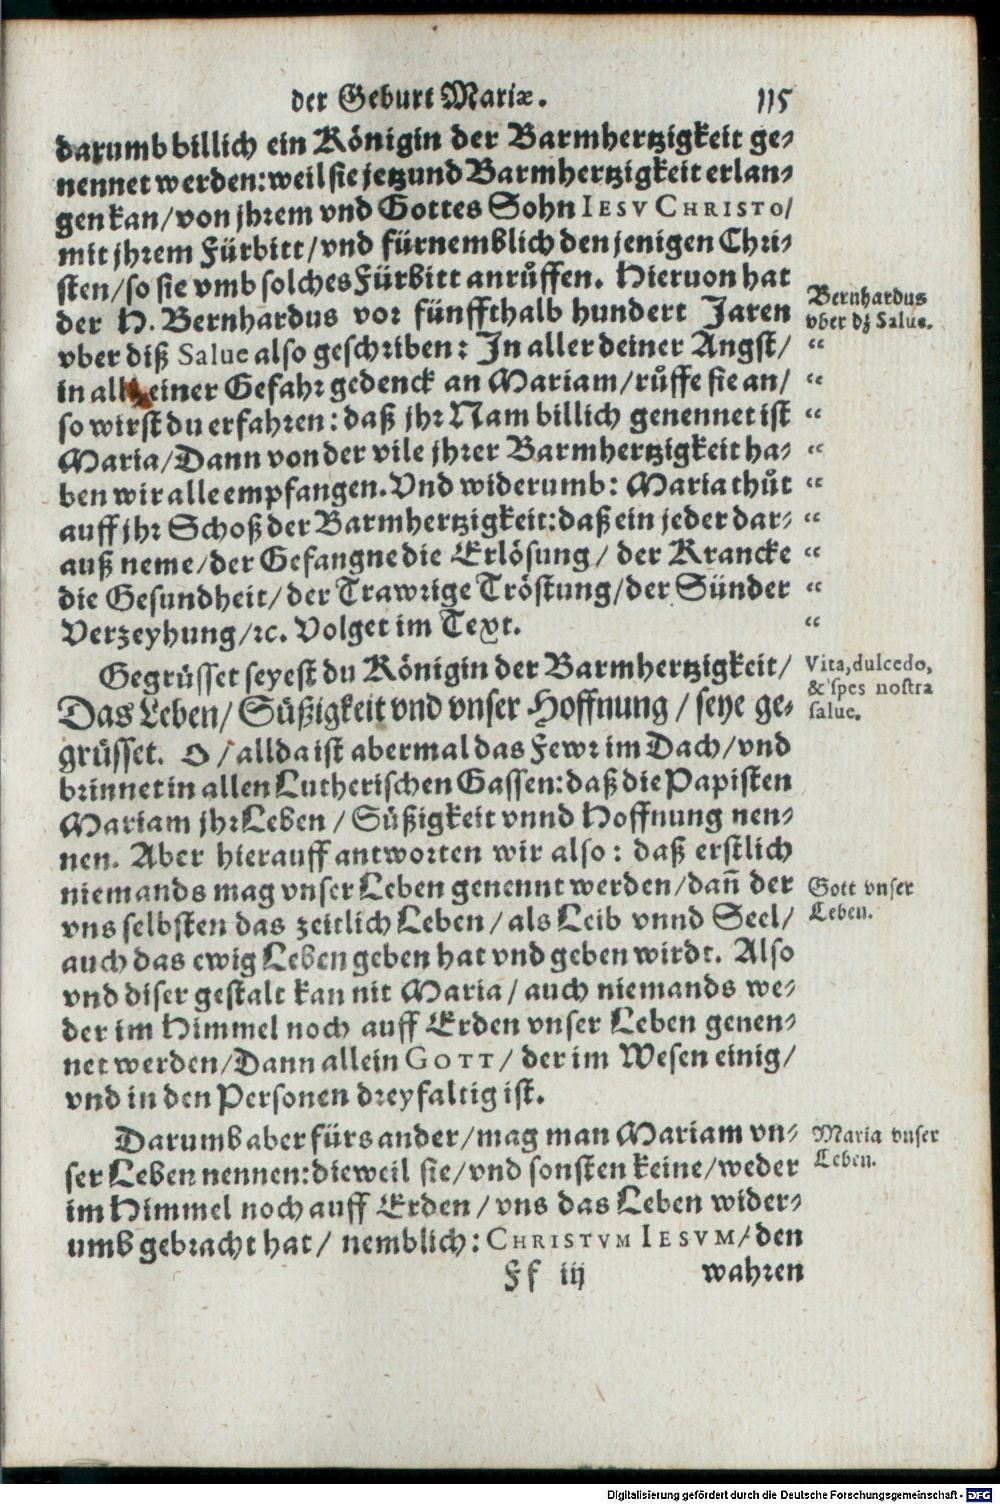 der Geburt Mariæ. 115
darumb billich ein Königin der Barmhertzigkeit ge-
nennet werden: weil sie jetzund Barmhertzigkeit erlan-
gen kan/ von jhrem vnd Gottes Sohn IESV CHRISTO/
mit jhrem Fürbitt/ vnd fürnemblich den jenigen Chri-
sten/ so sie vmb solches Fürbitt anrůffen. Hieruon hat
der H. Bernhardus vor fünffthalb hundert Jaren
Bernhardus
vber dz Salue.
vber diß Salue also geschriben: In aller deiner Angst/ “
in all einer Gefahr gedenck an Mariam/ růffe sie an/ “
so wirst du erfahren: daß jhr Nam billich genennet ist “
Maria/ Dann von der vile jhrer Barmhertzigkeit ha- “
ben wir alle empfangen. Vnd widerumb: Maria thůt “
auff jhr Schoß der Barmhertzigkeit: daß ein jeder dar- “
auß neme/ der Gefangne die Erlösung/ der Krancke “
die Gesundheit/ der Trawrige Tröstung/ der Sünder “
Verzeyhung/ ꝛc. Volget im Text. “
Gegrüsset seyest du Königin der Barmhertzigkeit/
Das Leben/ Süßigkeit vnd vnser Hoffnung/ seye ge-
Vita, dulcedo,
& spes nostra
salue.
grüsset. O/ allda ist abermal das Fewr im Dach/ vnd
brinnet in allen Lutherischen Gassen: daß die Papisten
Mariam jhr Leben/ Süßigkeit vnnd Hoffnung nen-
nen. Aber hierauff antworten wir also: daß erstlich
niemands mag vnser Leben genennt werden/ dañ der
Gott vnser
Leben.
vns selbsten das zeitlich Leben/ als Leib vnnd Seel/
auch das ewig Leben geben hat vnd geben wirdt. Also
vnd diser gestalt kan nit Maria/ auch niemands we-
der im Himmel noch auff Erden vnser Leben genen-
net werden/ Dann allein GOTT/ der im Wesen einig/
vnd in den Personen dreyfaltig ist.
Darumb aber fürs ander/ mag man Mariam vn-
Maria vnser
Leben.
ser Leben nennen: dieweil sie/ vnd sonsten keine/ weder
im Himmel noch auff Erden/ vns das Leben wider-
umb gebracht hat/ nemblich: CHRISTVM IESVM/ den
Ff iij wahren
Digitalisierung gefördert durch die Deutsche Forschungsgemeinschaft - DFG